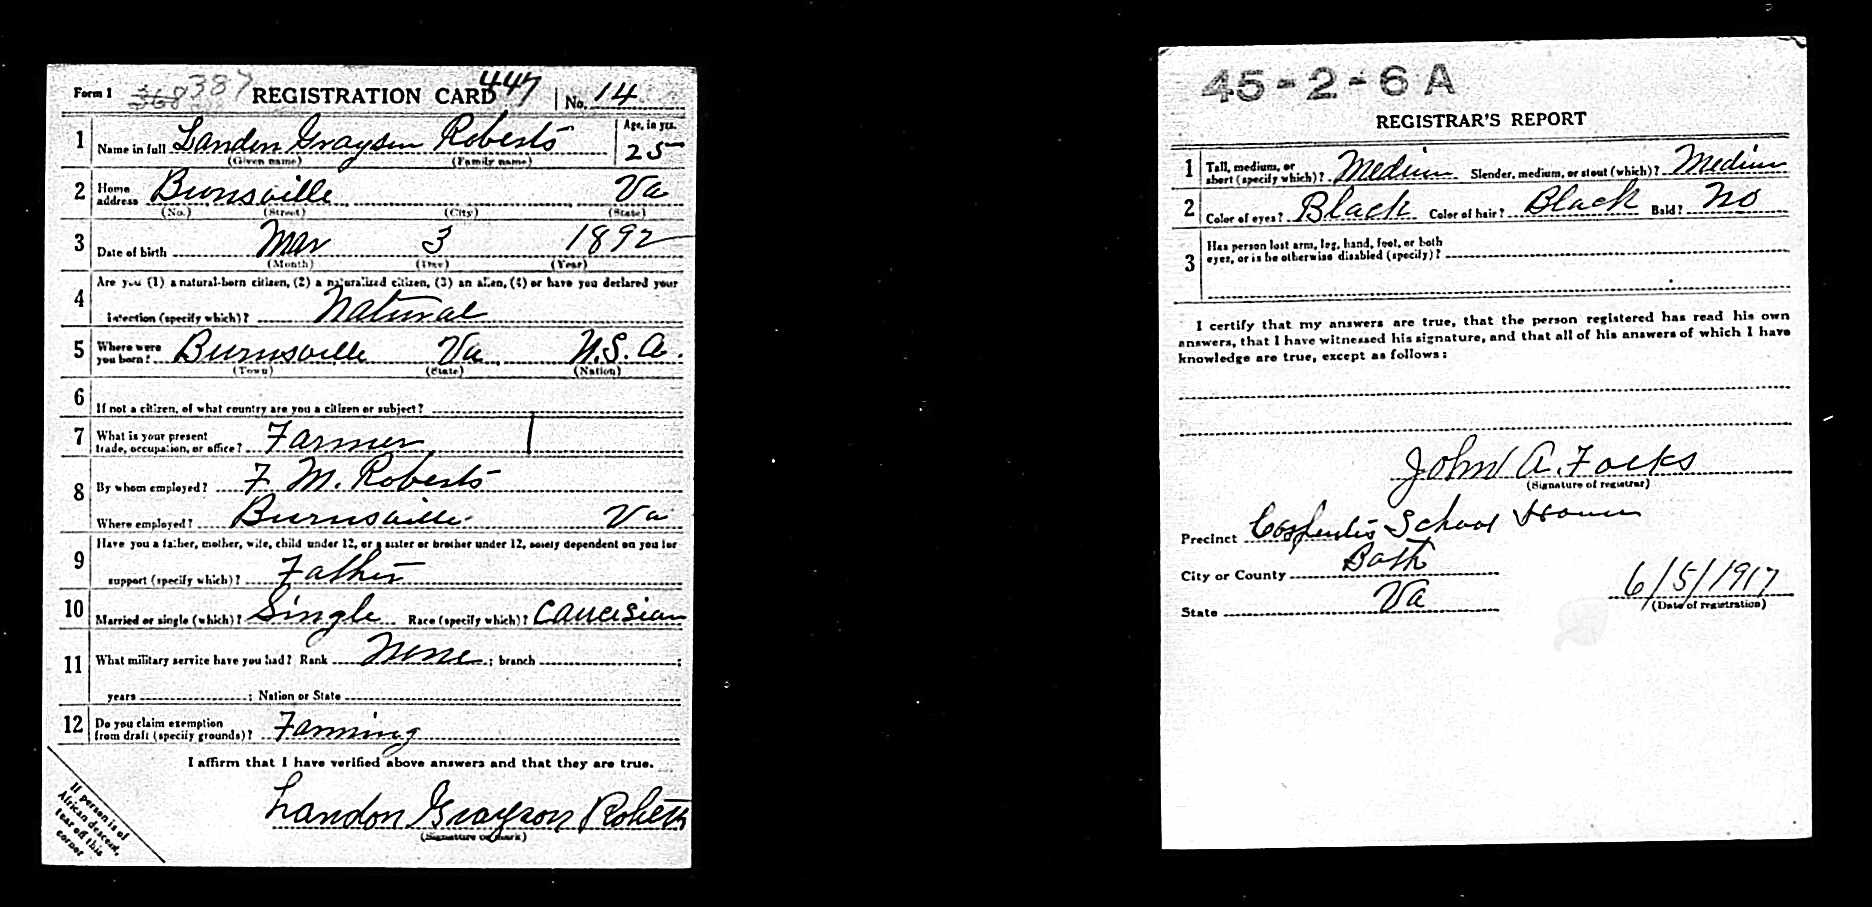 Form 1 368 387 REGISTRATION CARD 447 No. 14
1 Name in full Landon Grayson Roberts Age, in yrs. 25
(Given name) (Family name)
2 Home address Burnsville Va
(No.) (Street) (City) (State)
3 Date of birth Mar 3 1892
(Month) (Day) (Year)
4 Are you (1) a natural-born citizen, (2) a naturalized citizen, (3) an alien, (4) or have you declared your
intention (specify which)? Natural
5 Where were you born? Burnsville Va U.S.A.
(Town) (State) (Nation)
6 If not a citizen, of what country are you a citizen or subject?
7 What is your present
trade, occupation, or office? Farmer
8 By whom employed? F. M. Roberts
Where employed? Burnsville Va
9 Have you a father, mother, wife, child under 12, or a sister or brother under 12, solely dependent on you for
support (specify which)? Father
10 Married or single (which)? Single Race (specify which)? Caucisian
11 What military service have you had? Rank None ; branch ;
years ; Nation or State
12 Do you claim exemption
from draft (specify grounds)? Farming
I affirm that I have verified above answers and that they are true.
Landon Grayson Roberts
(Signature or mark)
If person is of
African descent,
tear off this
corner
45-2-6 A
REGISTRAR'S REPORT
1 Tall, medium, or
short (specify which)? Medium Slender, medium, or stout (which)? Medium
2 Color of eyes? Black Color of hair? Black Bald? No
3 Has person lost arm, leg, hand, foot, or both
eyes, or is he otherwise disabled (specify)?
I certify that my answers are true, that the person registered has read his own
answers, that I have witnessed his signature, and that all of his answers of which I have
knowledge are true, except as follows:
John A. Forks
(Signature of registrar)
Precinct School House
City or County Bath
State Va
6/5/1917
(Date of registration)